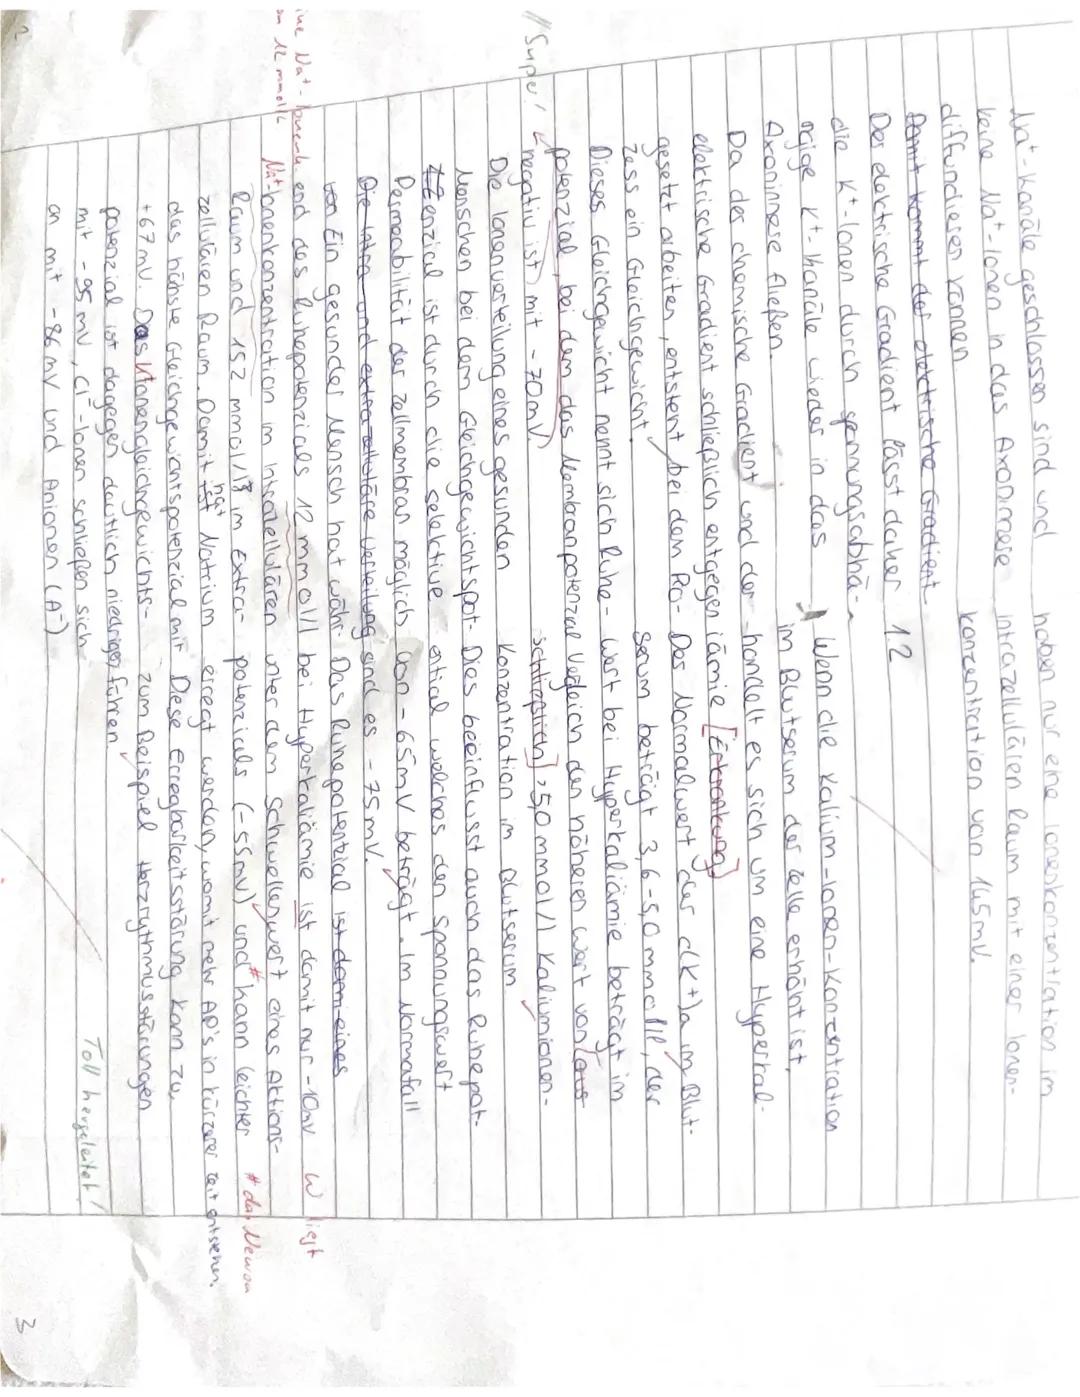 Na⁺-Kanäle geschlossen sind und
keine Na⁺-Ionen in das Axoninnere
diffundieren können.
Damit kommt der elektrische Gradient
Der elektrische Gradient lässt daher
die K⁺-Ionen durch spannungsabhä-
ngige K⁺-Kanäle wieder in das
Axoninnere fließen.
Da der chemische Gradient und der
elektrische Gradient schließlich entgegen
gesetzt arbeiten, entsteht bei dem Pro-
zess ein Gleichgewicht.
Dieses Gleichgewicht nennt sich Ruhe-
potenzial, bei dem das Membranpotenzial
// Super! negativ ist) mit -70mV.
Die Ionenverteilung eines gesunden
Menschen bei dem Gleichgewichtspot-
enzial ist durch die selektive
Permeabilität der Zellmembran möglich
Die Intra und extrazelluläre Verteilung
Ein gesunder Mensch hat wäh-
ine Na⁺-Ionenk
rend des Ruhepotenziales 12 mmol/l
on 12 mmol/l
Na⁺ Ionenkonzentration im intrazellulären
Raum und 152 mmol/l im Extra-
zellulären Raum. Damit hat Natrium
das höhste Gleichgewichtspotenzial mit
+67mV. Das Ionengleichgewichts-
potenzial ist dagegen deutlich niedriger
mit -95 mV, Cl⁻-Ionen schließen sich
an mit -86 mV und Anionen (A⁻)
2
haben nur eine Ionenkonzentration im
intrazellulären Raum mit einer Ionen-
konzentration von 145mV.
12
Wenn die Kalium-Ionen-Konzentration
im Blutserum der Zelle erhöht ist,
handelt es sich um eine Hyperkal-
iämie [Erkrankung]
Der Normalwert der c(K+)a im Blut-
serum beträgt 3,6-5,0 mmol/l, der
Wert bei Hyperkaliämie beträgt im
den näheren Wert von
schließlich] >5,0 mmol/l Kaliumionen-
Konzentration im Blutserum.
Dies beeinflusst auch das Ruhepot-
ential welches den Spannungswert
von -65mV beträgt. Im Normalfall
sind es -75mV.
Das Ruhepotential ist
bei Hyperkaliämie ist damit nur -10mV
liegt
unter dem Schwellenwert eines Aktions-
potenzials (-55mV) und # kann leichter
# das Neuron
erregt werden, womit mehr AP's in kürzerer Zeit entstehen.
Diese Erregbarkeitsstörung kann zu,
zum Beispiel Herzrythmusstörungen
führen.
Toll hergeleitet!
3